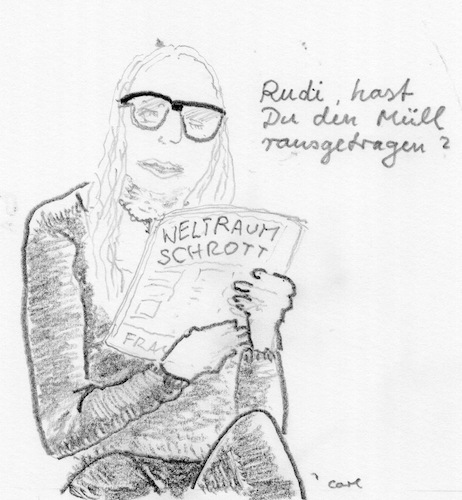 Rudi, hast
Du den Müll
rausgetragen?
WELTRAUM
SCHROTT
FRA
carl